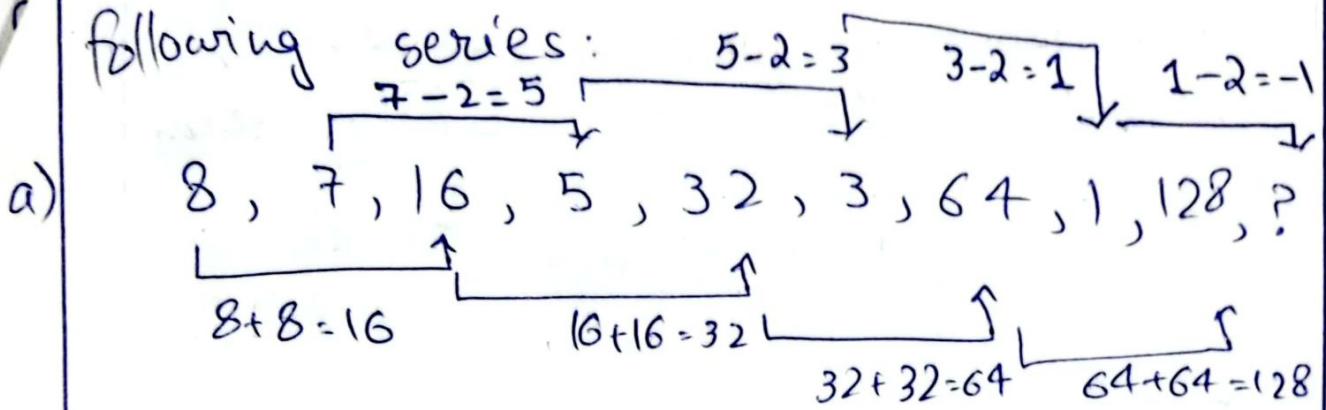 following series:
5-2=3 3-2=1 1-2=-1
7-2=5
a) 8, 7, 16, 5, 32, 3, 64, 1, 128, ?
8+8=16 16+16=32
32+32=64 64+64=128